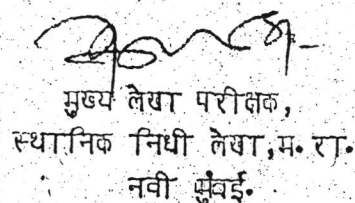 मुख्य लेखा परीक्षक,
स्थानिक निधी लेखा,म. रा.
नवी मुंबई.